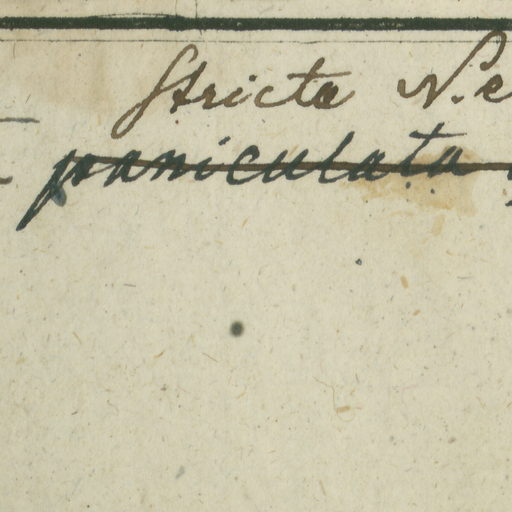 Stricta N.e
paniculata